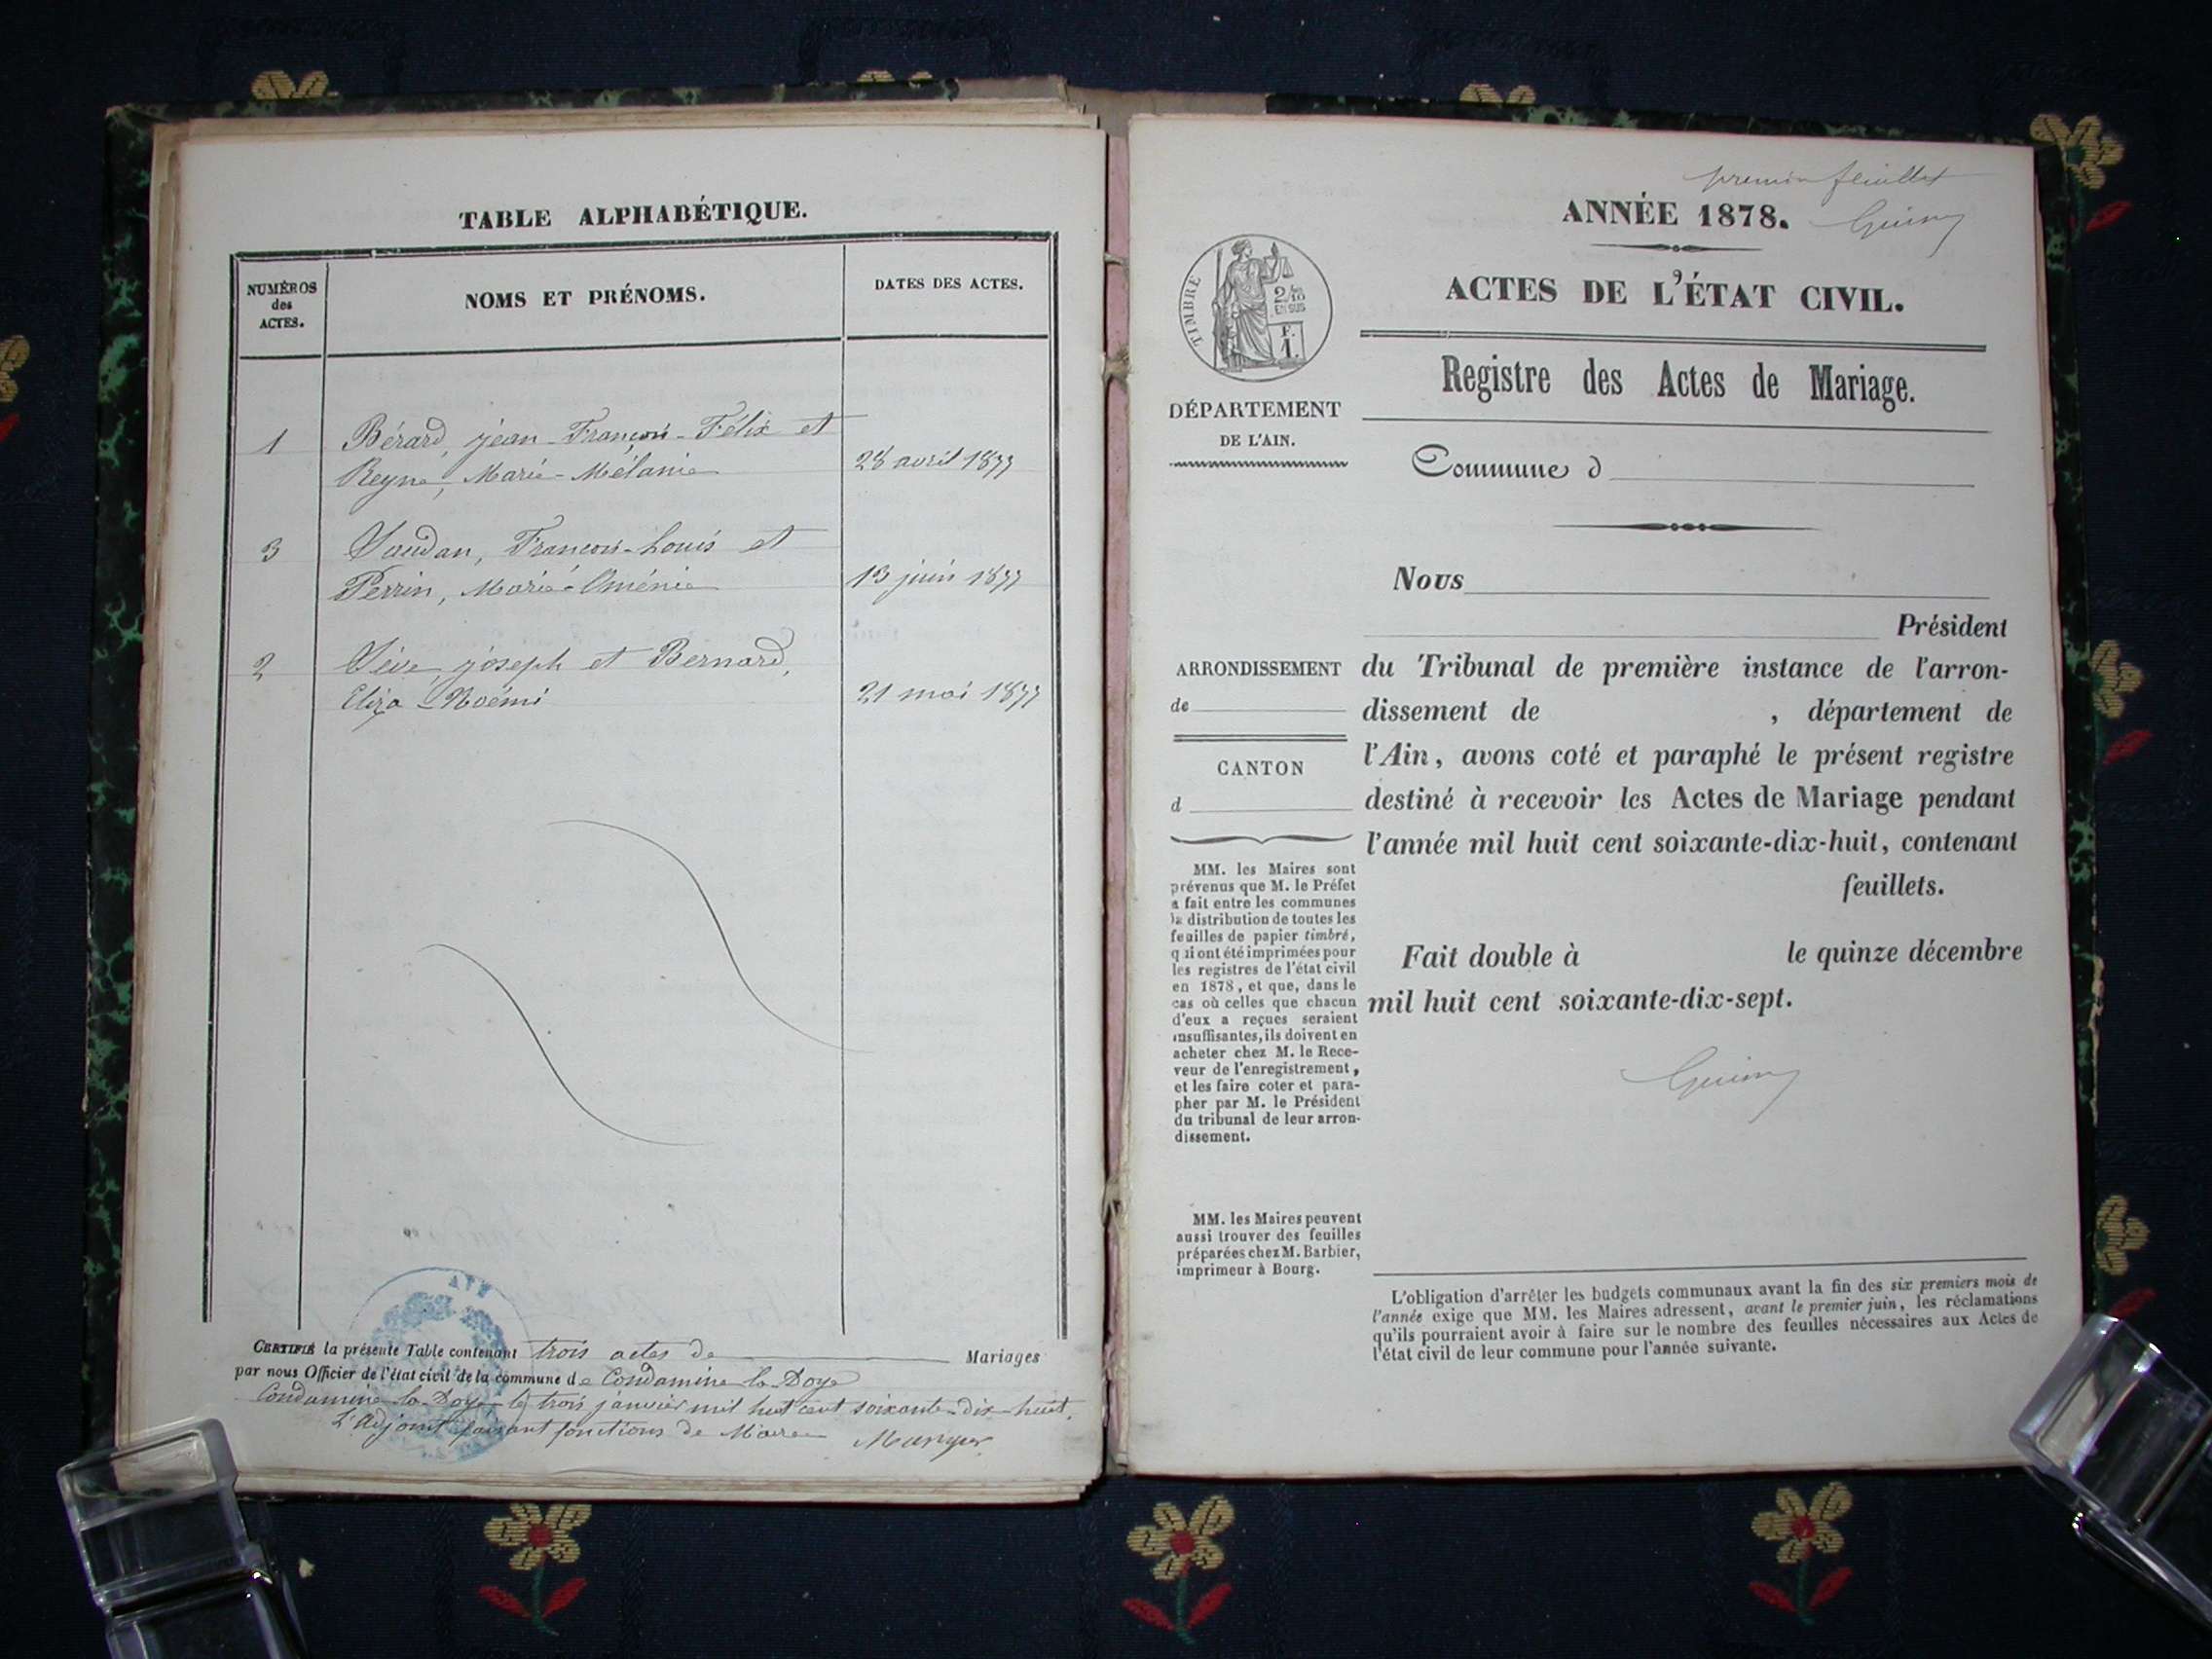 TABLE ALPHABÉTIQUE.
NUMÉROS
des
ACTES.
NOMS ET PRÉNOMS.
DATES DES ACTES.
1
Bérard, jean-François-Félix et
Reyne, Marie-Mélanie
28 avril 1877
3
Saudan, François-Louis et
Perrin, Marie-Oménie
13 juin 1877
2
Sève, joseph et Bernard,
Eliza-Noémi
21 mai 1877
AIN
CERTIFIÉ la présente Table contenant trois actes de Mariages
par nous Officier de l'état civil de la commune de Condamine la Doye
Condamine la Doye le trois janvier mil huit cent soixante-dix-huit.
L'Adjoint faisant fonctions de Maire
premier feuillet
ANNÉE 1878.
ACTES DE L'ÉTAT CIVIL.
TIMBRE
2/10
EN SUS
F.
1.
Registre des Actes de Mariage.
DÉPARTEMENT
DE L'AIN.
Commune d
Nous
Président
ARRONDISSEMENT
de
CANTON
d
du Tribunal de première instance de l'arron-
dissement de , département de
l'Ain, avons coté et paraphé le présent registre
destiné à recevoir les Actes de Mariage pendant
l'année mil huit cent soixante-dix-huit, contenant
feuillets.
Fait double à le quinze décembre
mil huit cent soixante-dix-sept.
MM. les Maires sont
prévenus que M. le Préfet
a fait entre les communes
la distribution de toutes les
feuilles de papier timbré,
qui ont été imprimées pour
les registres de l'état civil
en 1878, et que, dans le
cas où celles que chacun
d'eux a reçues seraient
insuffisantes, ils doivent en
acheter chez M. le Rece-
veur de l'enregistrement,
et les faire coter et para-
pher par M. le Président
du tribunal de leur arron-
dissement.
MM. les Maires peuvent
aussi trouver des feuilles
préparées chez M. Barbier,
imprimeur à Bourg.
L'obligation d'arrêter les budgets communaux avant la fin des six premiers mois de
l'année exige que MM. les Maires adressent, avant le premier juin, les réclamations
qu'ils pourraient avoir à faire sur le nombre des feuilles nécessaires aux Actes de
l'état civil de leur commune pour l'année suivante.